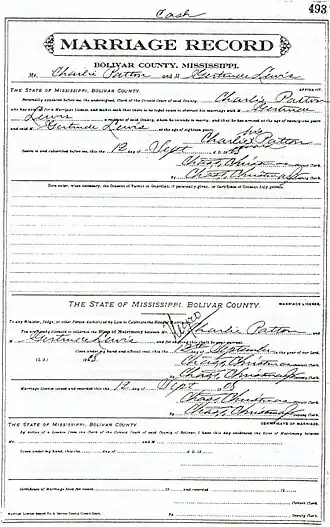 Cash
493
MARRIAGE RECORD
BOLIVAR COUNTY, MISSISSIPPI.
Mr. Charlie Patton and M Gertrude Lewis
THE STATE OF MISSISSIPPI, BOLIVAR COUNTY. AFFIDAVIT.
Personally appeared before me, the undersigned, Clerk of the Circuit Court of said County, Charlie Patton
who has applied for a Marriage License, and makes oath that there is no legal cause to obstruct his marriage with M Gertrude
Lewis a resident of said County, whom he intends to marry, and that he has arrived at the age of twenty-one years
and said M Gertrude Lewis at the age of eighteen years.
Charlie his Patton
Sworn to and subscribed before me, this the 12 day of Sept A. D. 1908
Chas. Christmas Clerk.
By Chas. Christmas
Here enter, when necessary, the Consent of Parent or Guardian, if personally given, or Certificate of Consent duly proven.
THE STATE OF MISSISSIPPI, BOLIVAR COUNTY. MARRIAGE LICENSE.
To any Minister, Judge, or other Person Authorized by Law to Celebrate the
Negro
You are hereby licensed to celebrate the Rites of Matrimony between Mr. Charlie Patton and
M Gertrude Lewis and for so doing this shall be your warrant.
Given under my hand and official seal, this the 12th day of September in the year of our Lord,
(L. S.) 1908 Chas. Christmas Clerk.
By Chas. Christmas
Marriage License issued and recorded this the 12 day of Sept 1908
Chas. Christmas Clerk.
By Chas. Christmas
THE STATE OF MISSISSIPPI, BOLIVAR COUNTY CERTIFICATE OF MARRIAGE.
By virtue of a License from the Clerk of the Circuit Court of said County of Bolivar, I have this day united in the Rites of Matrimony between
Mr. and M
Given under my hand, this the day of A. D. 19
Certificate of Marriage filed for record 19 and recorded 19
Circuit Clerk.
By Deputy Clerk.